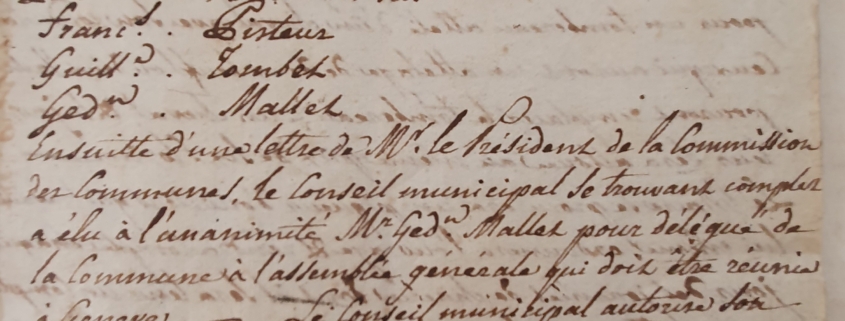 Franc.s . Pisteur
Guill.e . Combet
Ged.n . Mallet
Ensuitte d'une lettre de Mr. le Président de la Commission
des Communes, le Conseil municipal se trouvant complet
a élu à l'unanimité Mr. Ged.n Mallet pour délégué de
la Commune à l'assemblée générale qui doit être réunie
à Geneve Le Conseil municipal autorise son